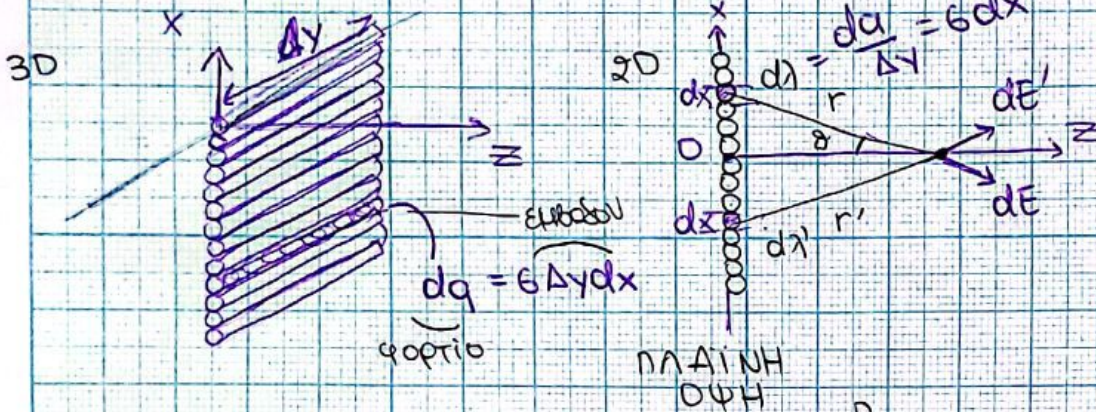 3D
X
Δy
Z
εμβαδού
dq = σΔydx
φορτίο
2D
x
dλ = dq/Δy = σdx
dx
r
dE'
O
θ
Z
dx
dλ'
r'
dE
ΠΛΑΪΝΗ
ΟΨΗ